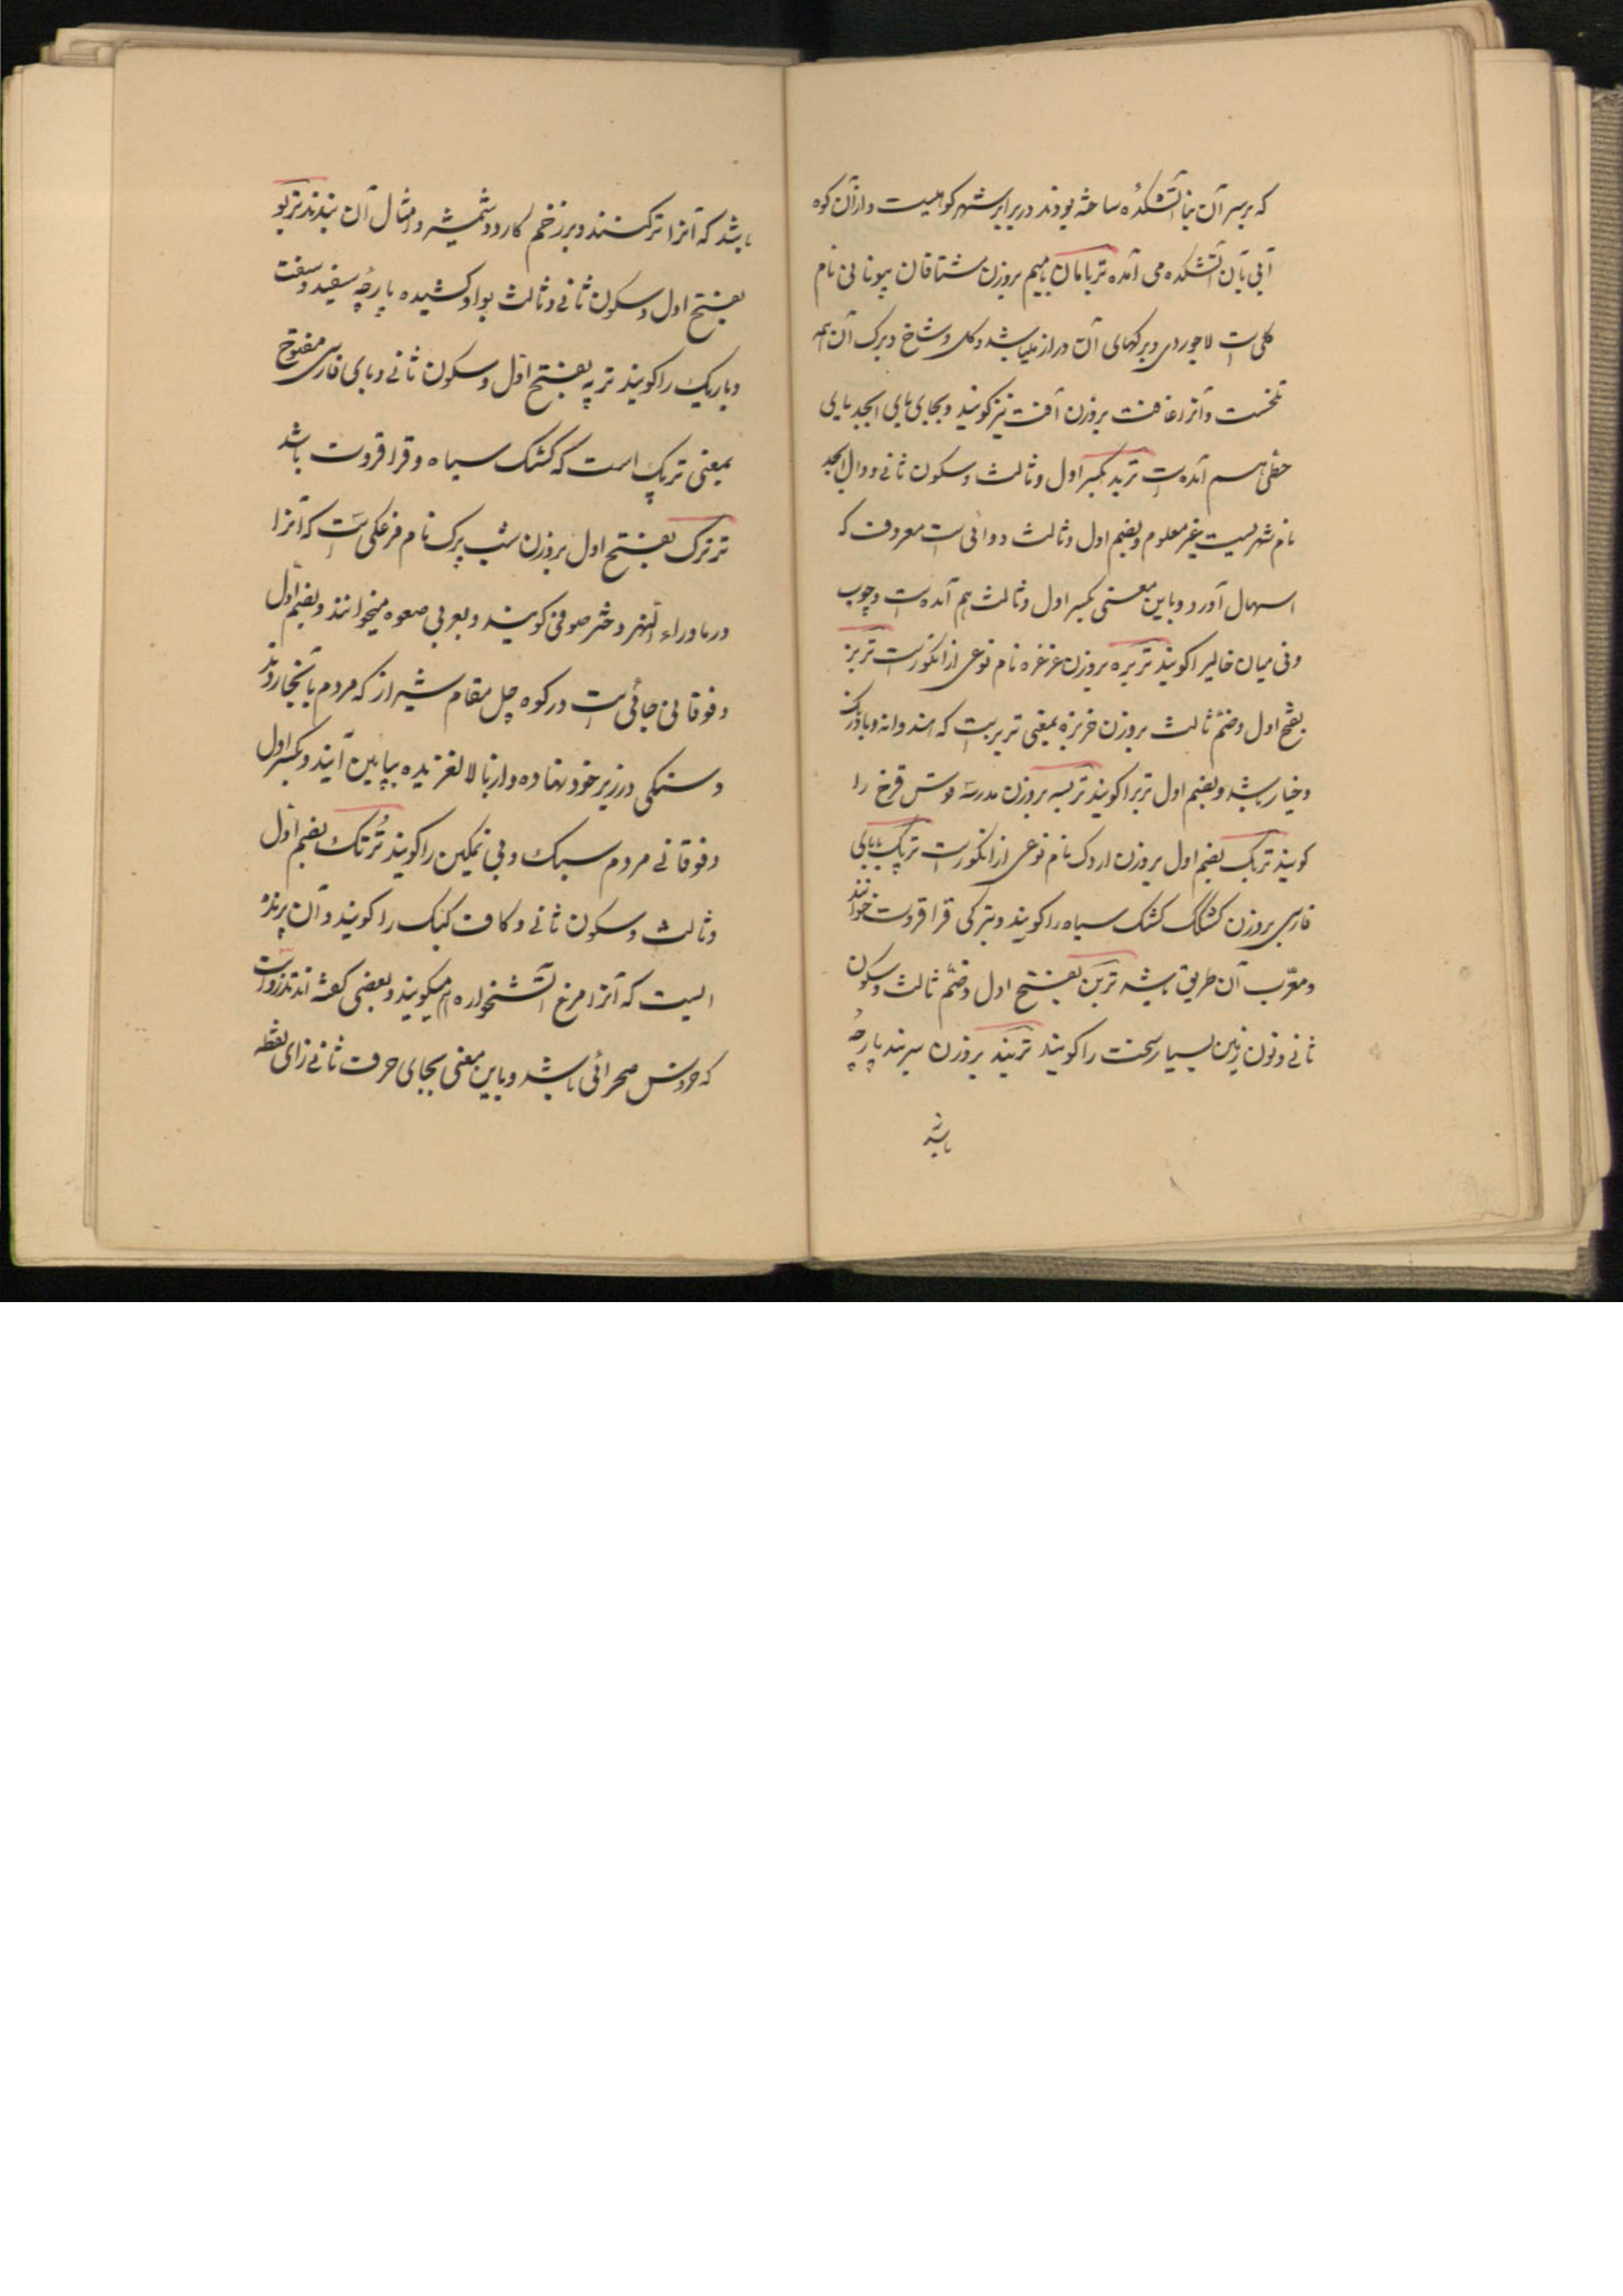 که بر سر آن بنا آتشکده ساخته بودند در برابر شهر کواهیست و از آن کوه
آبی بآن آتشکده می آمده تربامان بامیم بر وزن مشتاقان بیونانی نام
کلی است لاجوردی و برکهای آن دراز میباشد و کل و شاخ و برک آن همه
تلخست و آنرا غافت بر وزن آفت نیز کویند و بجای بای ابجد یای
حطی هم آمده است تربد بکسر اول و ثالث و سکون ثانی و دال ابجد
نام شهریست غیر معلوم و بضم اول و ثالث دوائی است معروف که
اسهال آورد و باین معنی بکسر اول و ثالث هم آمده است و چوب
و نی میان خالیرا کویند تربره بر وزن غرغره نام نوعی از انکورست تربز
بفتح اول و ضم ثالث بر وزن خربزه بمعنی تربزیست که هندوانه و بادرنک
و خیار باشد و بضم اول تربرا کویند تربسه بر وزن مدرسه قوس قزح را
کویند تربک بضم اول بر وزن اردک نام نوعی از انکورست ترپک بابای
فارسی بر وزن کشکک کشک سیاه را کویند و بترکی قراقروت خوانند
و معرب آن طریق باشد تربن بفتح اول و ضم ثالث و سکون
ثانی و نون زمین بسیار سخت را کویند تربند بر وزن سربند پارچهٔ
باشد
باشد که آنرا تر کنند و بر زخم کارد و شمشیر و امثال آن بندند تربو
بفتح اول و سکون ثانی و ثالث بواو کشیده پارچهٔ سفید و سفت
و باریک را کویند ترپه بفتح اول و سکون ثانی و بای فارسی مفتوح
بمعنی ترپک است که کشک سیاه و قراقروت باشد
ترترک بفتح اول بر وزن شب پرک نام مرغکی است که آنرا
در ماوراء النهر دختر صوفی کویند و بعربی صعوه میخوانند و بضم اول
و فوقانی جائی است در کوه چل مقام شیراز که مردم بآنجا روند
و سنکی در زیر خود نهاده و از بالا لغزیده بپایین آیند و بکسر اول
و فوقانی مردم سبک و بی تمکین را کویند تُرتک بضم اول
و ثالث و سکون ثانی و کاف کبک را کویند و آن پرنده
ایست که آنرا مرغ آتشخواره هم میکویند و بعضی کفته اند تذروست
که خروس صحرائی باشد و باین معنی بجای حرف ثانی زای نقطه